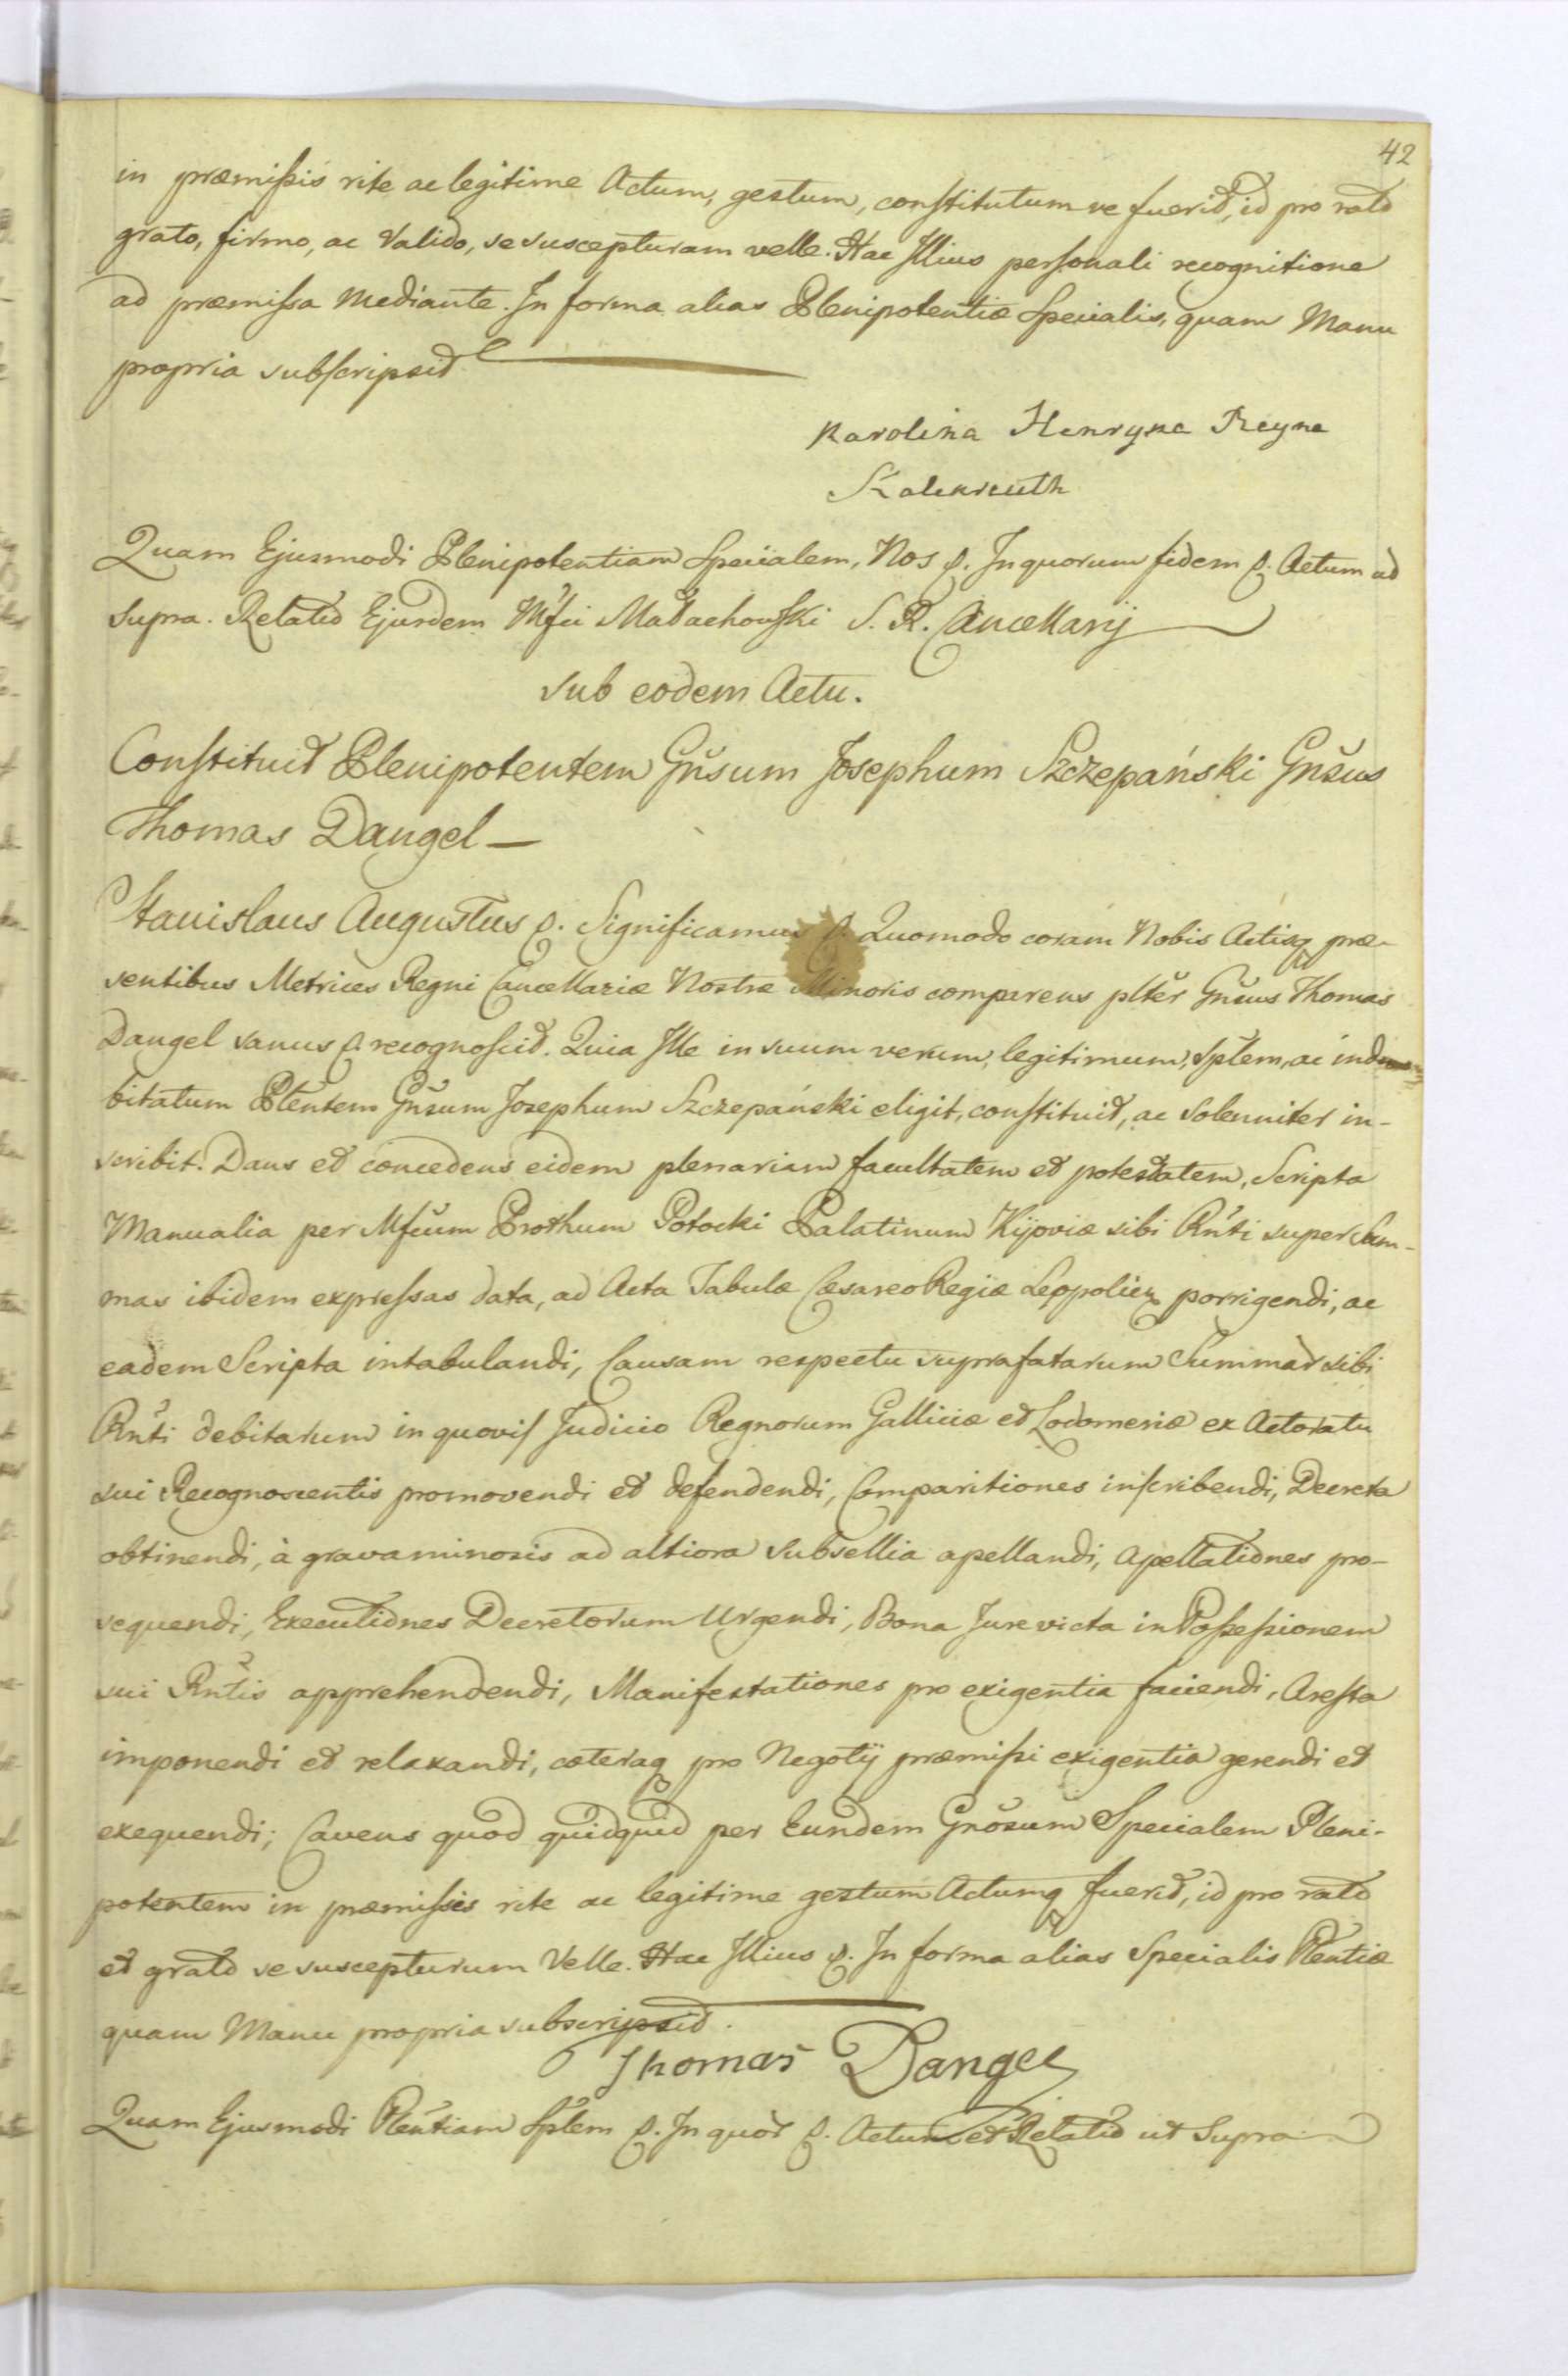 42
in præmißis rite ac legitime Actum, gestum, constitutum ve fuerit, id pro rato
grato, firmo, ac Valido, se suscepturam velle. Hac Illius personali recognitione
ad præmissa mediante. In forma alias Plenipotentiæ Specialis, quam Manu
propria subscripsit
Karolina Henryka Reyna
Kalkreuth
Quam Ejusmodi Plenipotentiam Specialem, Nos p. In quorum fidem p. Actum ad
supra. Relatio Ejusdem Mfci Małachowski S. R. Cancellarij
Sub eodem Actu.
Constituit Plenipotentem Gnsum Josephum Szczepański Gnsus
Thomas Dangel —
Stanislaus Augustus p. Significamus p. Quomodo coram Nobis Actisq præ-
sentibus Metrices Regni Cancellariæ Nostræ Minoris comparens plter Gnsus Thomas
Dangel sanus p. recognoscit. Quia Ille in suum verum, legitimum, Sptem, ac indu-
bitatum Pltentem Gnsum Josephum Szczepański eligit, constituit, ac Solenniter in-
scribit. Dans et concedens eidem plenariam facultatem et potestatem, Scripta
Manualia per Mfcum Prothum Potocki Palatinum Kijoviæ sibi Rnti super Sum-
mas ibidem expressas data, ad Acta Tabulæ CæsareoRegiæ Leopolien porrigendi, ac
eadem Scripta intabulandi, Causam respectu suprafatarum Summar sibi
Rnti debitarum in quovis Judicio Regnorum Galliciæ et Lodomeriæ ex Actoratu
sui Recognoscentis promovendi et defendendi, Comparitiones inscribendi, Decreta
obtinendi, à gravaminosis ad altiora Subsellia apellandi, Apellationes pro-
sequendi, Executiones Decretorum Urgendi, Bona Jure victa in Poßeßionem
sui Rntis apprehendendi, Manifestationes pro exigentia faciendi, Aresta
imponendi et relaxandi, cæteraq pro Negotij præmißi exigentia gerendi et
exequendi; Cavens quod quidquid per Eundem Gnosum Specialem Pleni-
potentem in præmissis rite ac legitime gestum Actumq fuerit, id pro rato
et grato se suscepturum Velle. Hac Illius p. In forma alias Specialis Pltentiæ
quam Manu propria subscripsit.
Thomas Dangel
Quam Ejusmodi Pltentiam Sptem p. In quor p. Actum et Relatio ut Supra